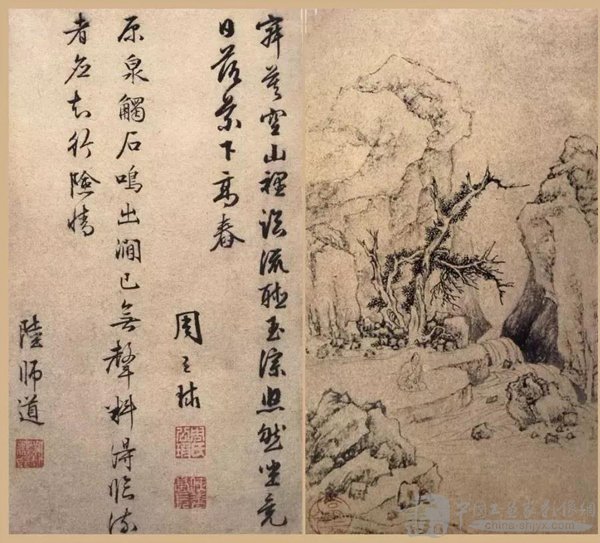 寂莫空山裡臨流聽玉淙悠然坐竟
日落葉下高舂
周天球
原泉觸石鳴出澗已無聲料得臨流
者應知行險情
陸師道
china-shjyx.com